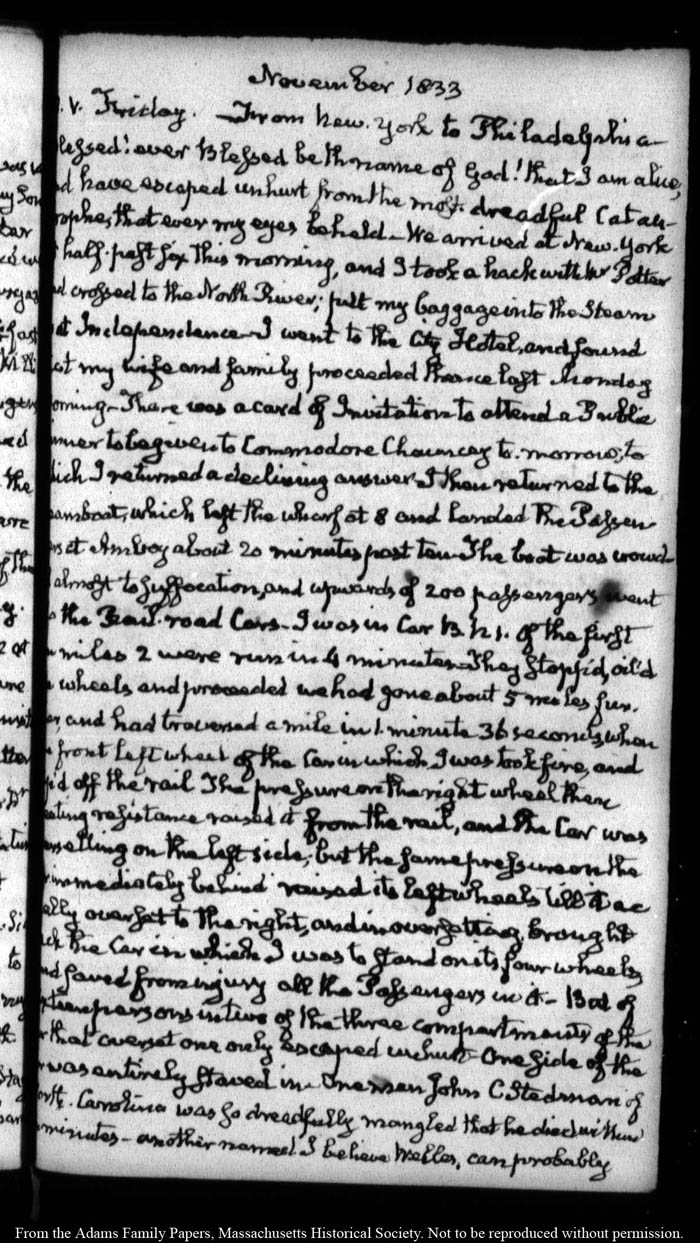 November 1833
.V. Friday. — From New-York to Philadelphia —
lessed! ever Blessed be the name of God! that I am alive,
d have escaped unhurt from the most dreadful Catas-
rophe, that ever my eyes beheld — We arrived at New-York
half-past six this morning, and I took a hack with Mr Potter
d crossed to the North River; put my baggage into the Steam
at Independence — I went to the City Hotel, and found
at my wife and family proceeded thence last Monday
orning — There was a card of Invitation to attend a Public
inner to be given to Commodore Chauncey to-morrow; to
hich I returned a declining answer — I then returned to the
eamboat, which left the wharf at 8 and landed the Passen
rs at Amboy about 20 minutes past ten — The boat was crowd-
almost to suffocation, and upwards of 200 passengers went
the Rail-road Cars — I was in Car B. N 1. of the first
miles 2 were run in 4 minutes — They stopp'd, oil'd
wheels and proceeded we had gone about 5 miles fur-
er, and had traversed a mile in 1 minute 36 seconds, when
front left wheel of the Car in which I was took fire, and
p'd off the rail The pressure on the right wheel then
eating resistance raised it from the rail, and the Car was
ersetting on the left side, but the same pressure on the
immediately behind raised its left wheels till it ac
ally overset to the right, and in oversetting, brought
ck the Car in which I was to stand on its four wheels,
nd saved from injury all the Passengers in it — But of
teen persons in two of the three compartments of the
that overset one only escaped unhurt — One side of the
was entirely staved in — One man John C Stedman of
orth-Carolina was so dreadfully mangled that he died within
minutes — another named I believe Welles, can probably
was
my Son
ed
the
of the
to
my
From the Adams Family Papers, Massachusetts Historical Society. Not to be reproduced without permission.